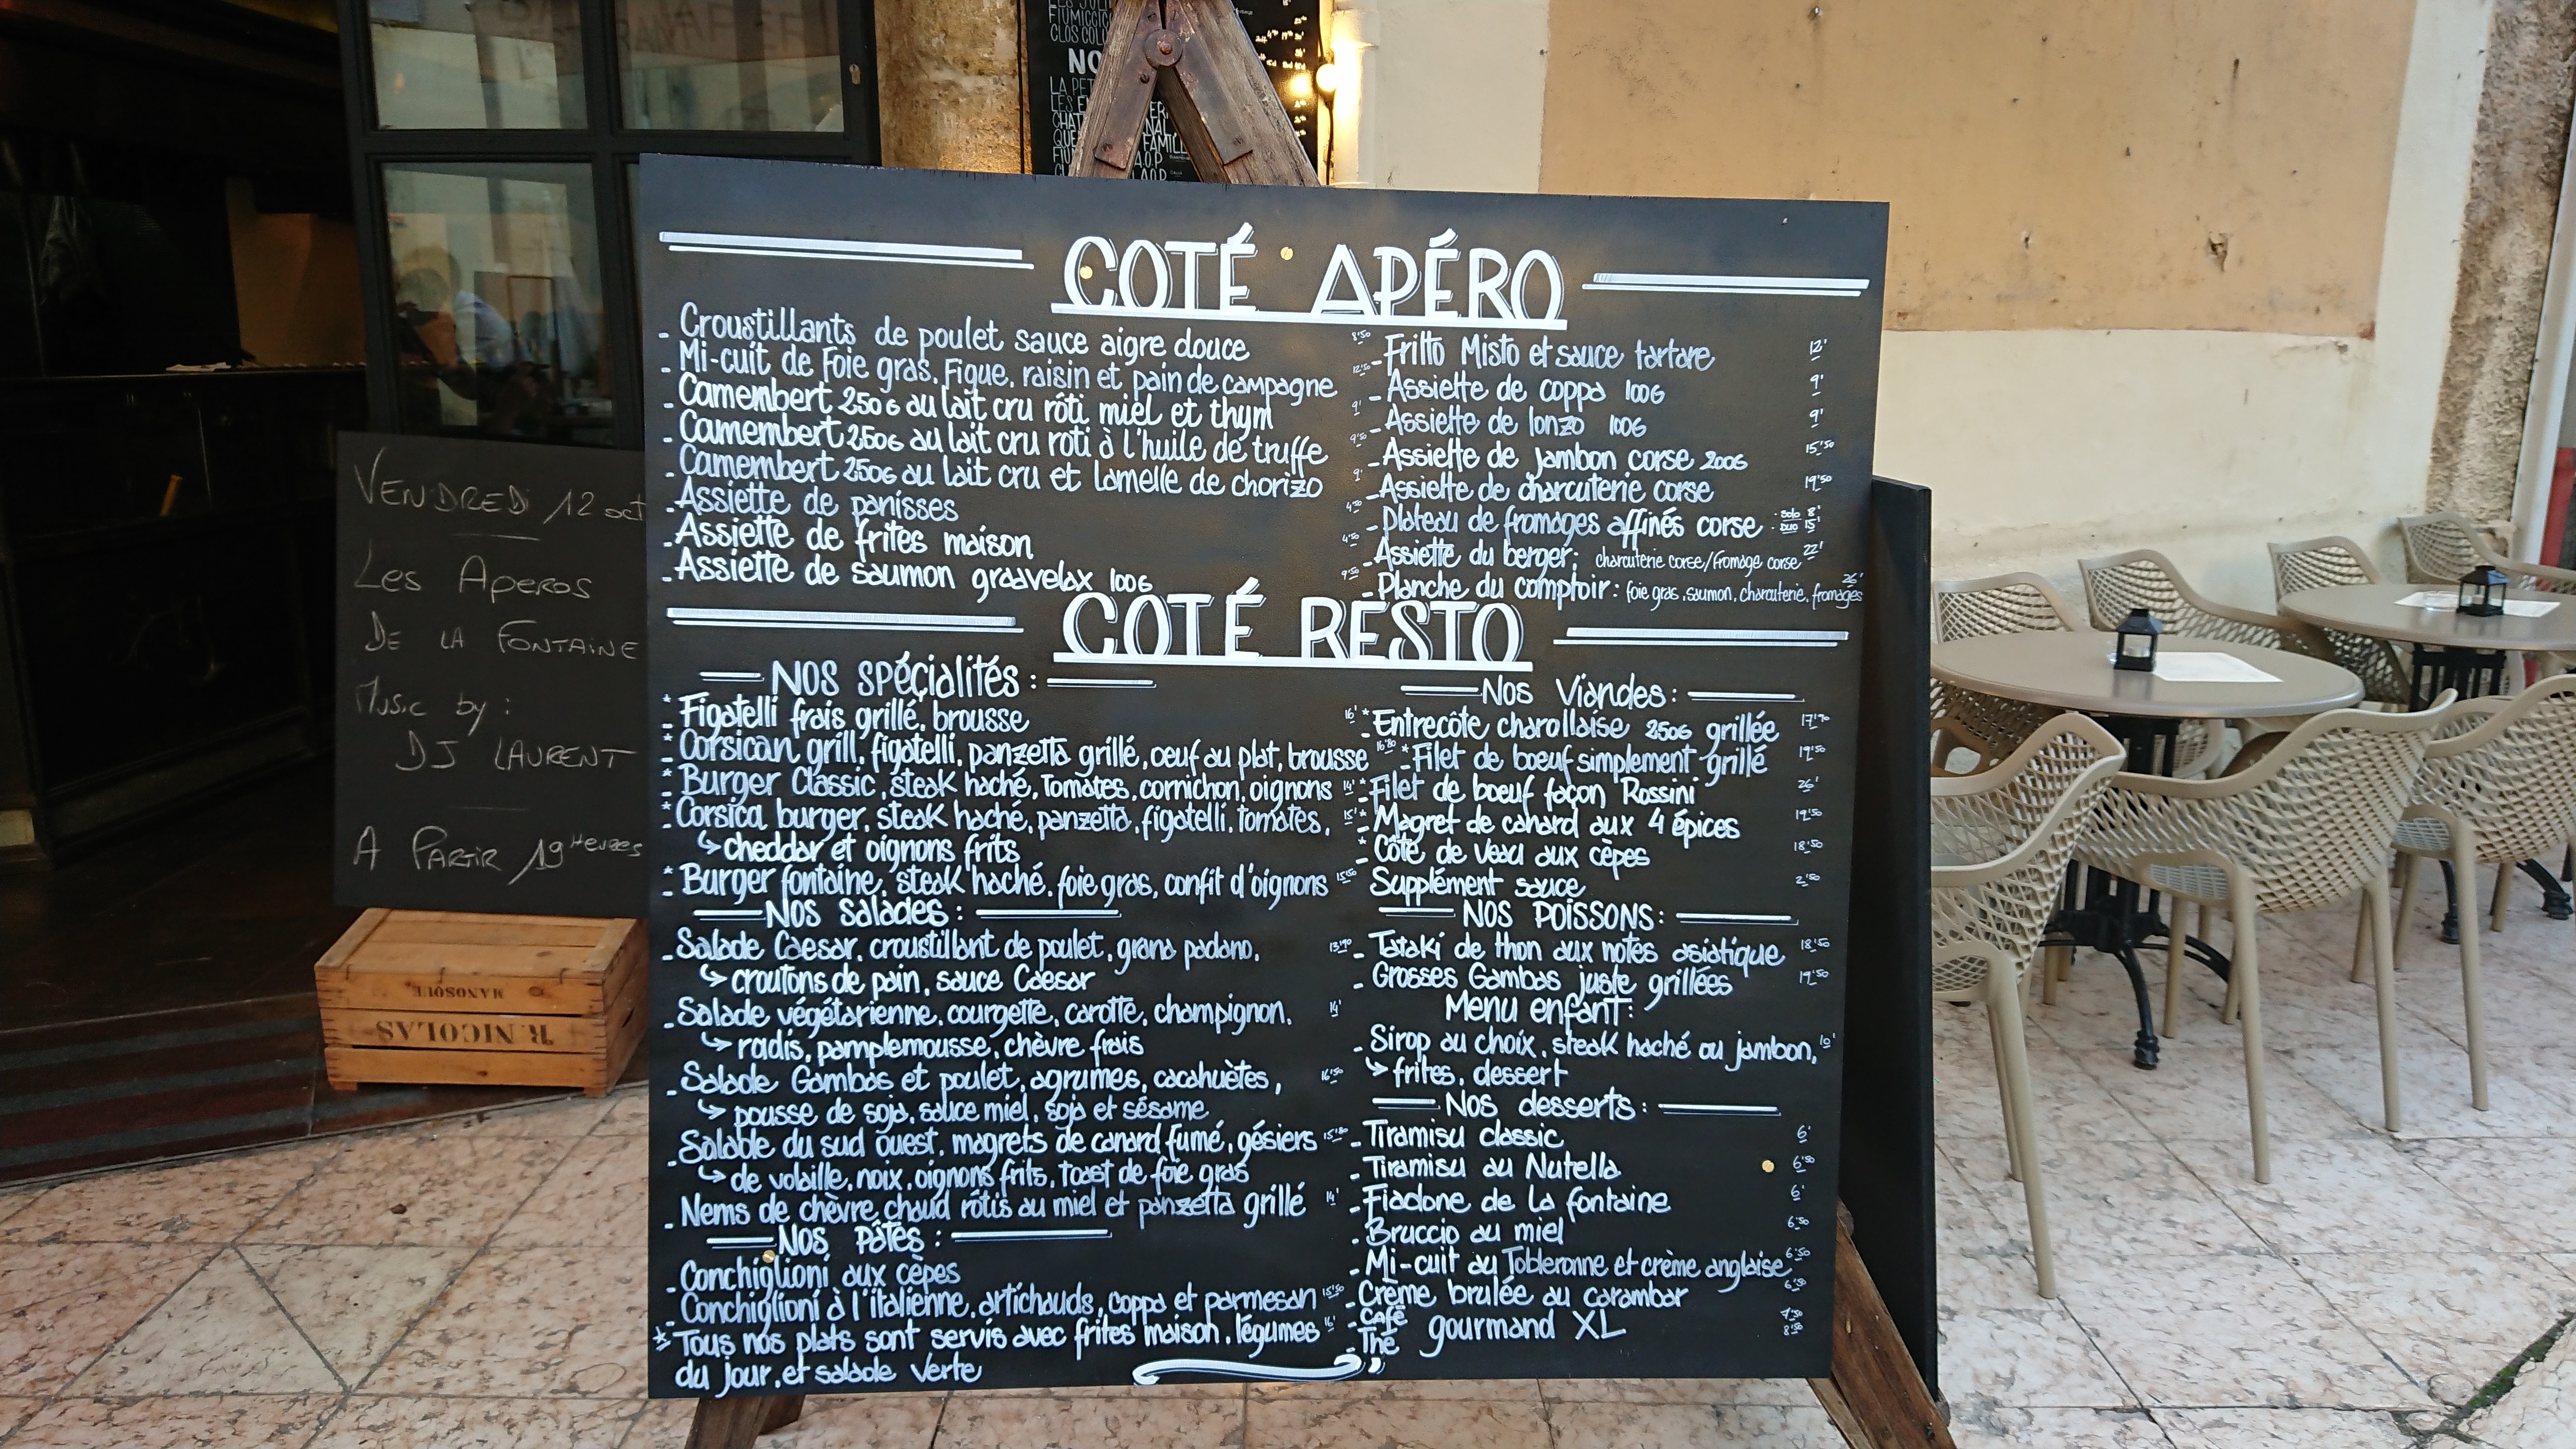 FIUMICCICO
CLOS COLO
NO
LA PET
COTÉ APÉRO
- Croustillants de poulet sauce aigre douce 8'50
- Mi-cuit de Foie gras, Figue, raisin et pain de campagne 12'50
- Camembert 250G au lait cru rôti miel et thym 9'
- Camembert 250G au lait cru roti à l'huile de truffe 9'50
- Camembert 250G au lait cru et lamelle de chorizo 9'
- Assiette de panisses 4'50
- Assiette de frites maison 4'50
- Assiette de saumon graavelax 100G 9'50
- Fritto Misto et sauce tartare 12'
- Assiette de coppa 100G 9'
- Assiette de lonzo 100G 9'
- Assiette de jambon corse 200G 15'50
- Assiette de charcuterie corse 19'50
- Plateau de fromages affinés corse - solo 8' - duo 15'
- Assiette du berger: charcuterie corse/fromage corse 22'
- Planche du comptoir: foie gras, saumon, charcuterie, fromages 26'
COTÉ RESTO
Nos spécialités:
* - Figatelli frais grillé, brousse 16'
* - Corsican grill, figatelli, panzetta grillé, oeuf au plat, brousse 16'80
* - Burger Classic, steak haché, tomates, cornichon, oignons 14'
* - Corsica burger, steak haché, panzetta, figatelli, tomates, 15'
↳ cheddar et oignons frits
* - Burger fontaine, steak haché, foie gras, confit d'oignons 15'50
Nos salades:
- Salade Caesar, croustillant de poulet, grana padano, 13'90
↳ croutons de pain, sauce Caesar
- Salade végétarienne, courgette, carotte, champignon, 14'
↳ radis, pamplemousse, chèvre frais
- Salade Gambas et poulet, agrumes, cacahuètes, 16'50
↳ pousse de soja, sauce miel, soja et sésame
- Salable du sud ouest, magrets de canard fumé, gésiers 15'80
↳ de volaille, noix, oignons frits, toast de foie gras
- Nems de chèvre chaud rôtis au miel et panzetta grillé 14'
Nos Pâtes:
- Conchiglioni aux cèpes 15'50
- Conchiglioni à l'italienne, artichauds, coppa et parmesan 16'
* Tous nos plats sont servis avec frites maison, légumes
du jour, et salade verte
Nos Viandes:
* - Entrecôte charollaise 250G grillée 17'90
* - Filet de boeuf simplement grillé 19'50
* - Filet de boeuf façon Rossini 26'
* - Magret de canard aux 4 épices 19'50
* - Côte de veau aux cèpes 18'50
Supplément sauce 2'50
Nos Poissons:
- Tataki de thon aux notes asiatique 18'50
- Grosses Gambas juste grillées 19'50
Menu enfant:
- Sirop au choix, steak haché ou jambon, 10'
↳ frites, dessert
Nos desserts:
- Tiramisu classic 6'
- Tiramisu au Nutella 6'50
- Fiadone de La fontaine 6'
- Bruccio au miel 6'50
- Mi-cuit au Tobleronne et crème anglaise 6'50
- Crème brulée au carambar 6'50
- Café gourmand XL 7'50
- Thé 8'50
VENDREDI 12 oct
Les Aperos
De la Fontaine
Music by:
DJ LAURENT
A Partir 19 Heures
MANOSQUE
R. NICOLAS